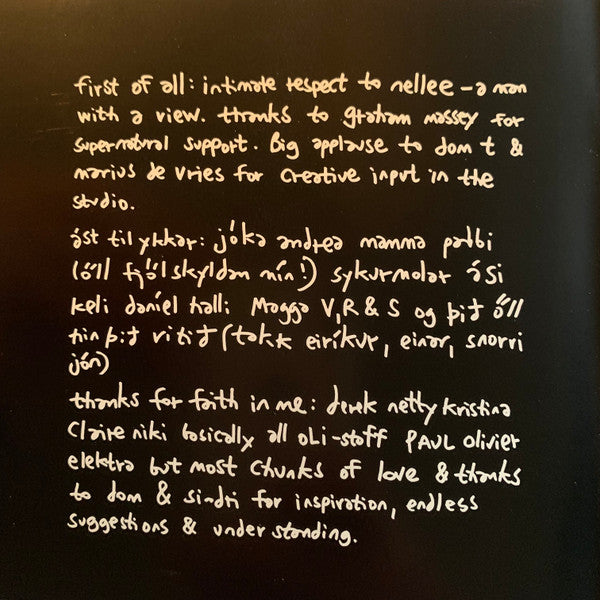 first of all: intimate respect to nellee - a man
with a view. thanks to graham massey for
supernatural support. Big applause to dom t &
marius de vries for creative input in the
studio.
ást til ykkar: jóka andrea mamma pabbi
(öll fjölskyldan mín!) sykurmolar ási
keli daníel halli Magga V, R & S og þið öll
hin þið vitið (takk eiríkur, einar, snorri
jón)
thanks for faith in me: derek netty kristina
Claire niki basically all oLi-staff PAUL olivier
elektra but most chunks of love & thanks
to dom & sindri for inspiration, endless
suggestions & understanding.